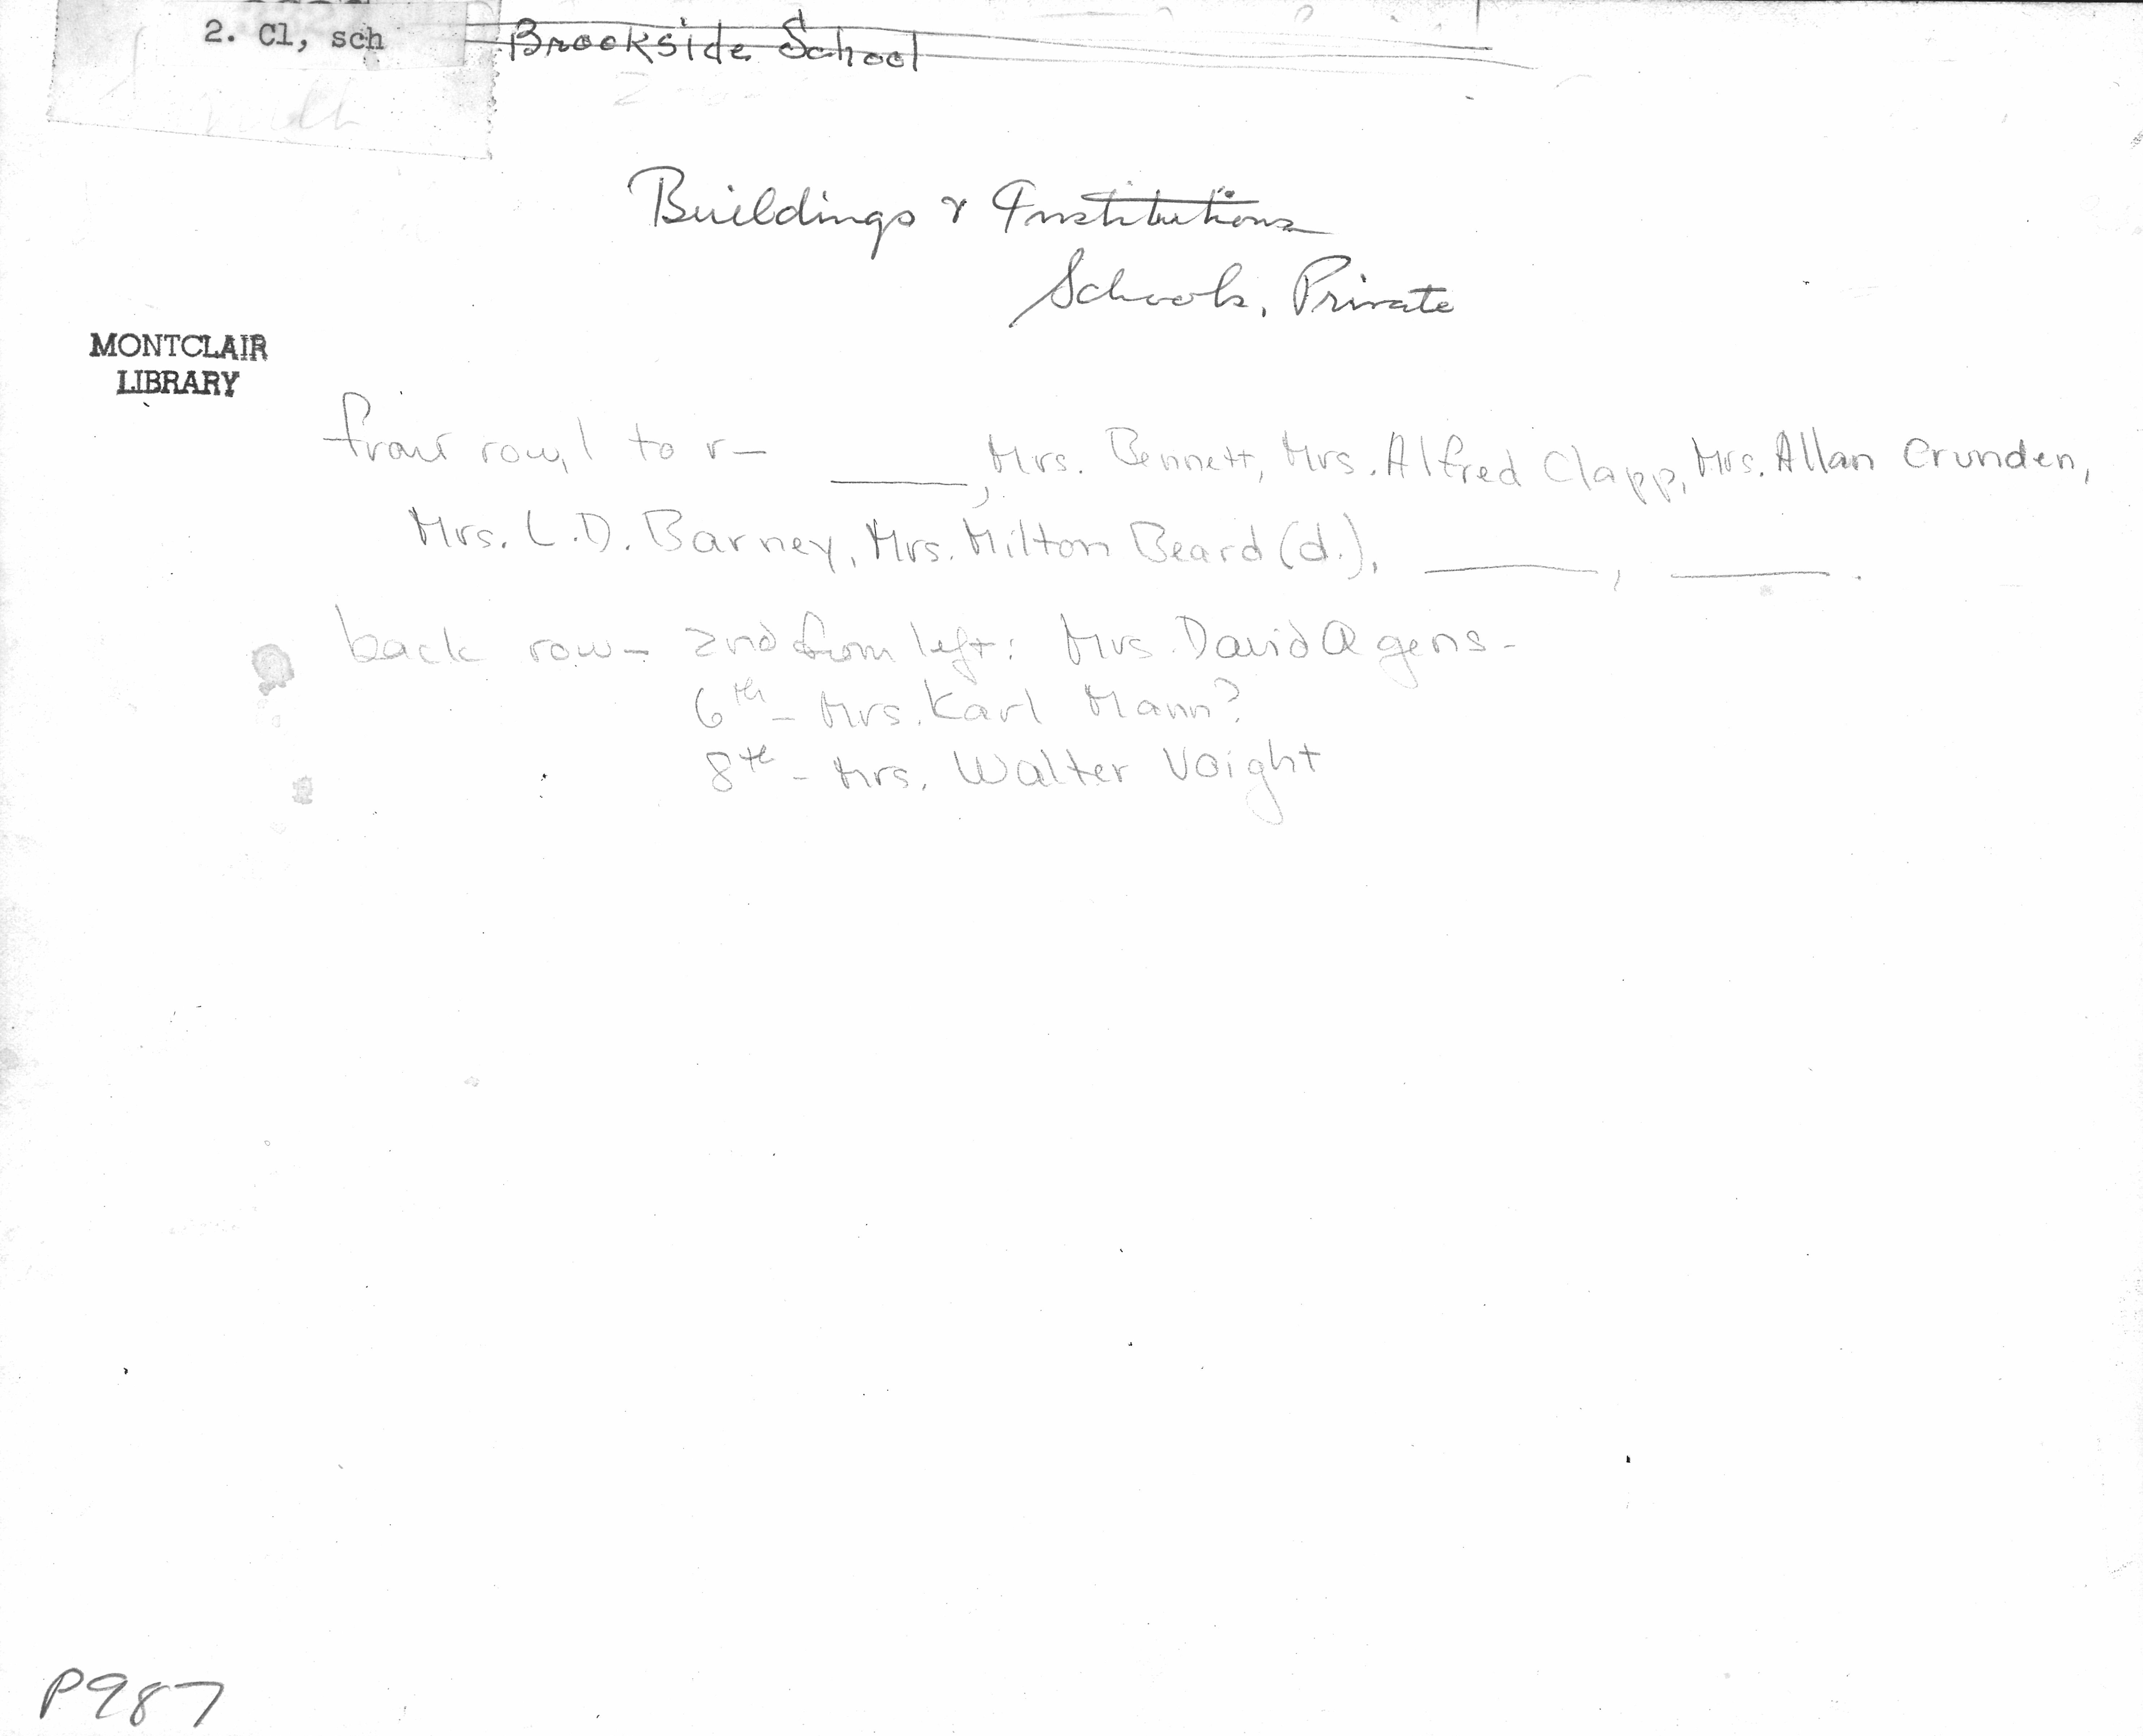 2. Cl, sch Brookside School
Buildings & Institutions
Schools, Private
MONTCLAIR
LIBRARY
front row, l to r— ______, Mrs. Bennett, Mrs. Alfred Clapp, Mrs. Allan Crunden,
Mrs. L.D. Barney, Mrs. Milton Beard (d.), ______, ______.
back row— 2nd from left: Mrs. David Agens-
6th - Mrs. Karl Mann?
8th - Mrs. Walter Voight
P987